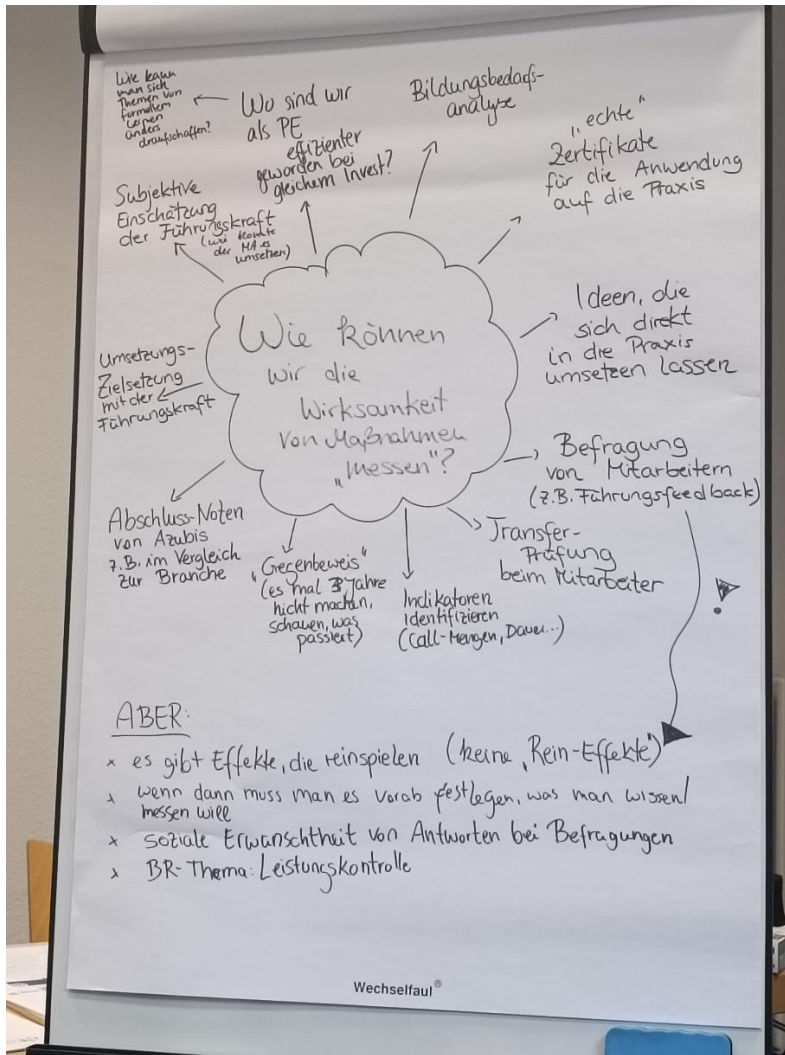 Wie kann
man sich
Themen von
formellem
Lernen
anders
draufschaffen?
Wo sind wir
als PE
effizienter
geworden bei
gleichem Invest?
Bildungsbedarfs-
analyse
"echte"
Zertifikate
für die Anwendung
auf die Praxis
Subjektive
Einschätzung
der Führungskraft
(wie konnte
der MA es
umsetzen)
Wie können
wir die
Wirksamkeit
von Maßnahmen
„messen"?
Ideen, die
sich direkt
in die Praxis
umsetzen lassen
Umsetzungs-
Zielsetzung
mit der
Führungskraft
Befragung
von Mitarbeitern
(z.B. Führungsfeedback)
Transfer-
Prüfung
beim Mitarbeiter
!
Abschluss-Noten
von Azubis
z.B. im Vergleich
zur Branche
"Gegenbeweis"
(es mal 3 Jahre
nicht machen,
schauen, was
passiert)
Indikatoren
identifizieren
(Call-Mengen, Dauer...)
ABER:
x es gibt Effekte, die reinspielen (keine „Rein-Effekte")
x wenn dann muss man es vorab festlegen, was man wissen/
messen will
x soziale Erwünschtheit von Antworten bei Befragungen
x BR-Thema: Leistungskontrolle
Wechselfaul®